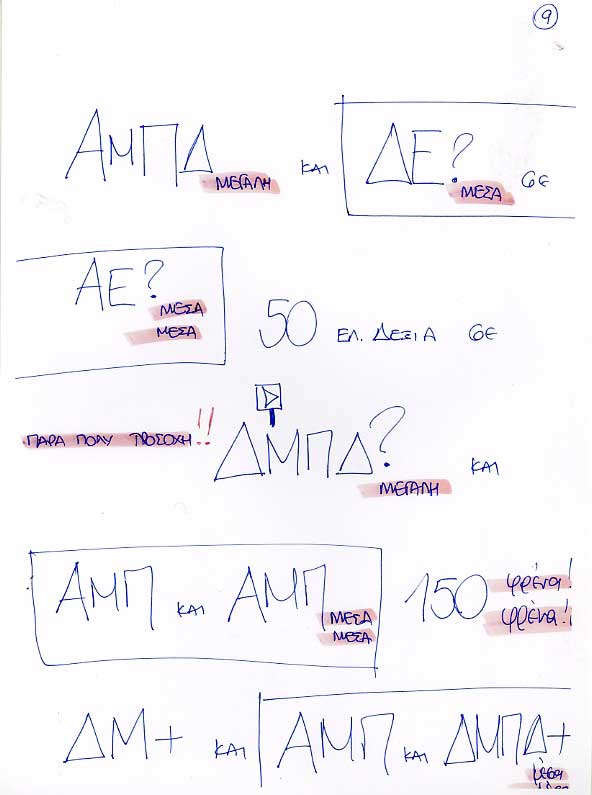 9
ΑΜΠΔ ΜΕΓΑΛΗ ΚΑΙ ΔΕ? ΜΕΣΑ σε
ΑΕ? ΜΕΣΑ
ΜΕΣΑ
50 ΕΛ. ΔΕΞΙΑ σε
ΠΑΡΑ ΠΟΛΥ ΠΡΟΣΟΧΗ!! ΔΜΠΔ? ΜΕΓΑΛΗ ΚΑΙ
ΑΜΠ ΚΑΙ ΑΜΠ ΜΕΣΑ
ΜΕΣΑ
150 φρένα!
φρένα!
ΔΜ+ ΚΑΙ ΑΜΠ ΚΑΙ ΔΜΠΔ+
μέσα